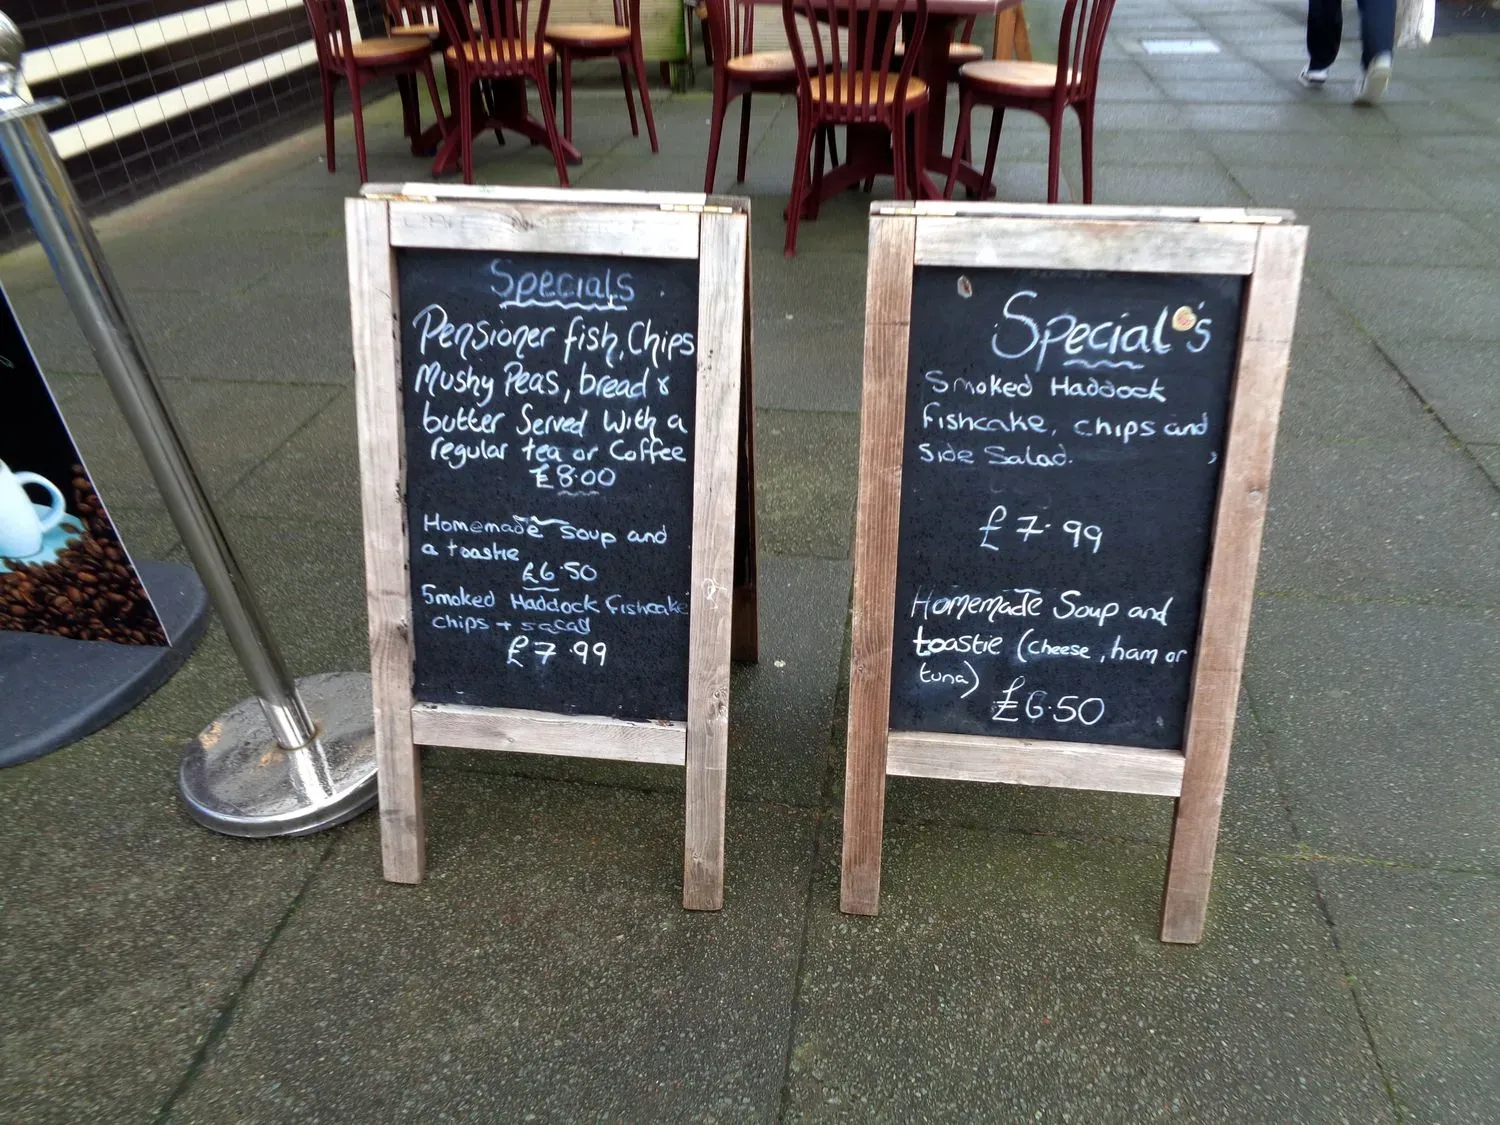 Specials
Pensioner fish, Chips
Mushy Peas, bread &
butter Served With a
regular tea or Coffee
£8.00
Homemade Soup and
a toastie
£6.50
Smoked Haddock fishcake
chips + salad
£7.99
Special's
Smoked Haddock
fishcake, chips and
Side Salad.
£7.99
Homemade Soup and
toastie (cheese, ham or
tuna)
£6.50